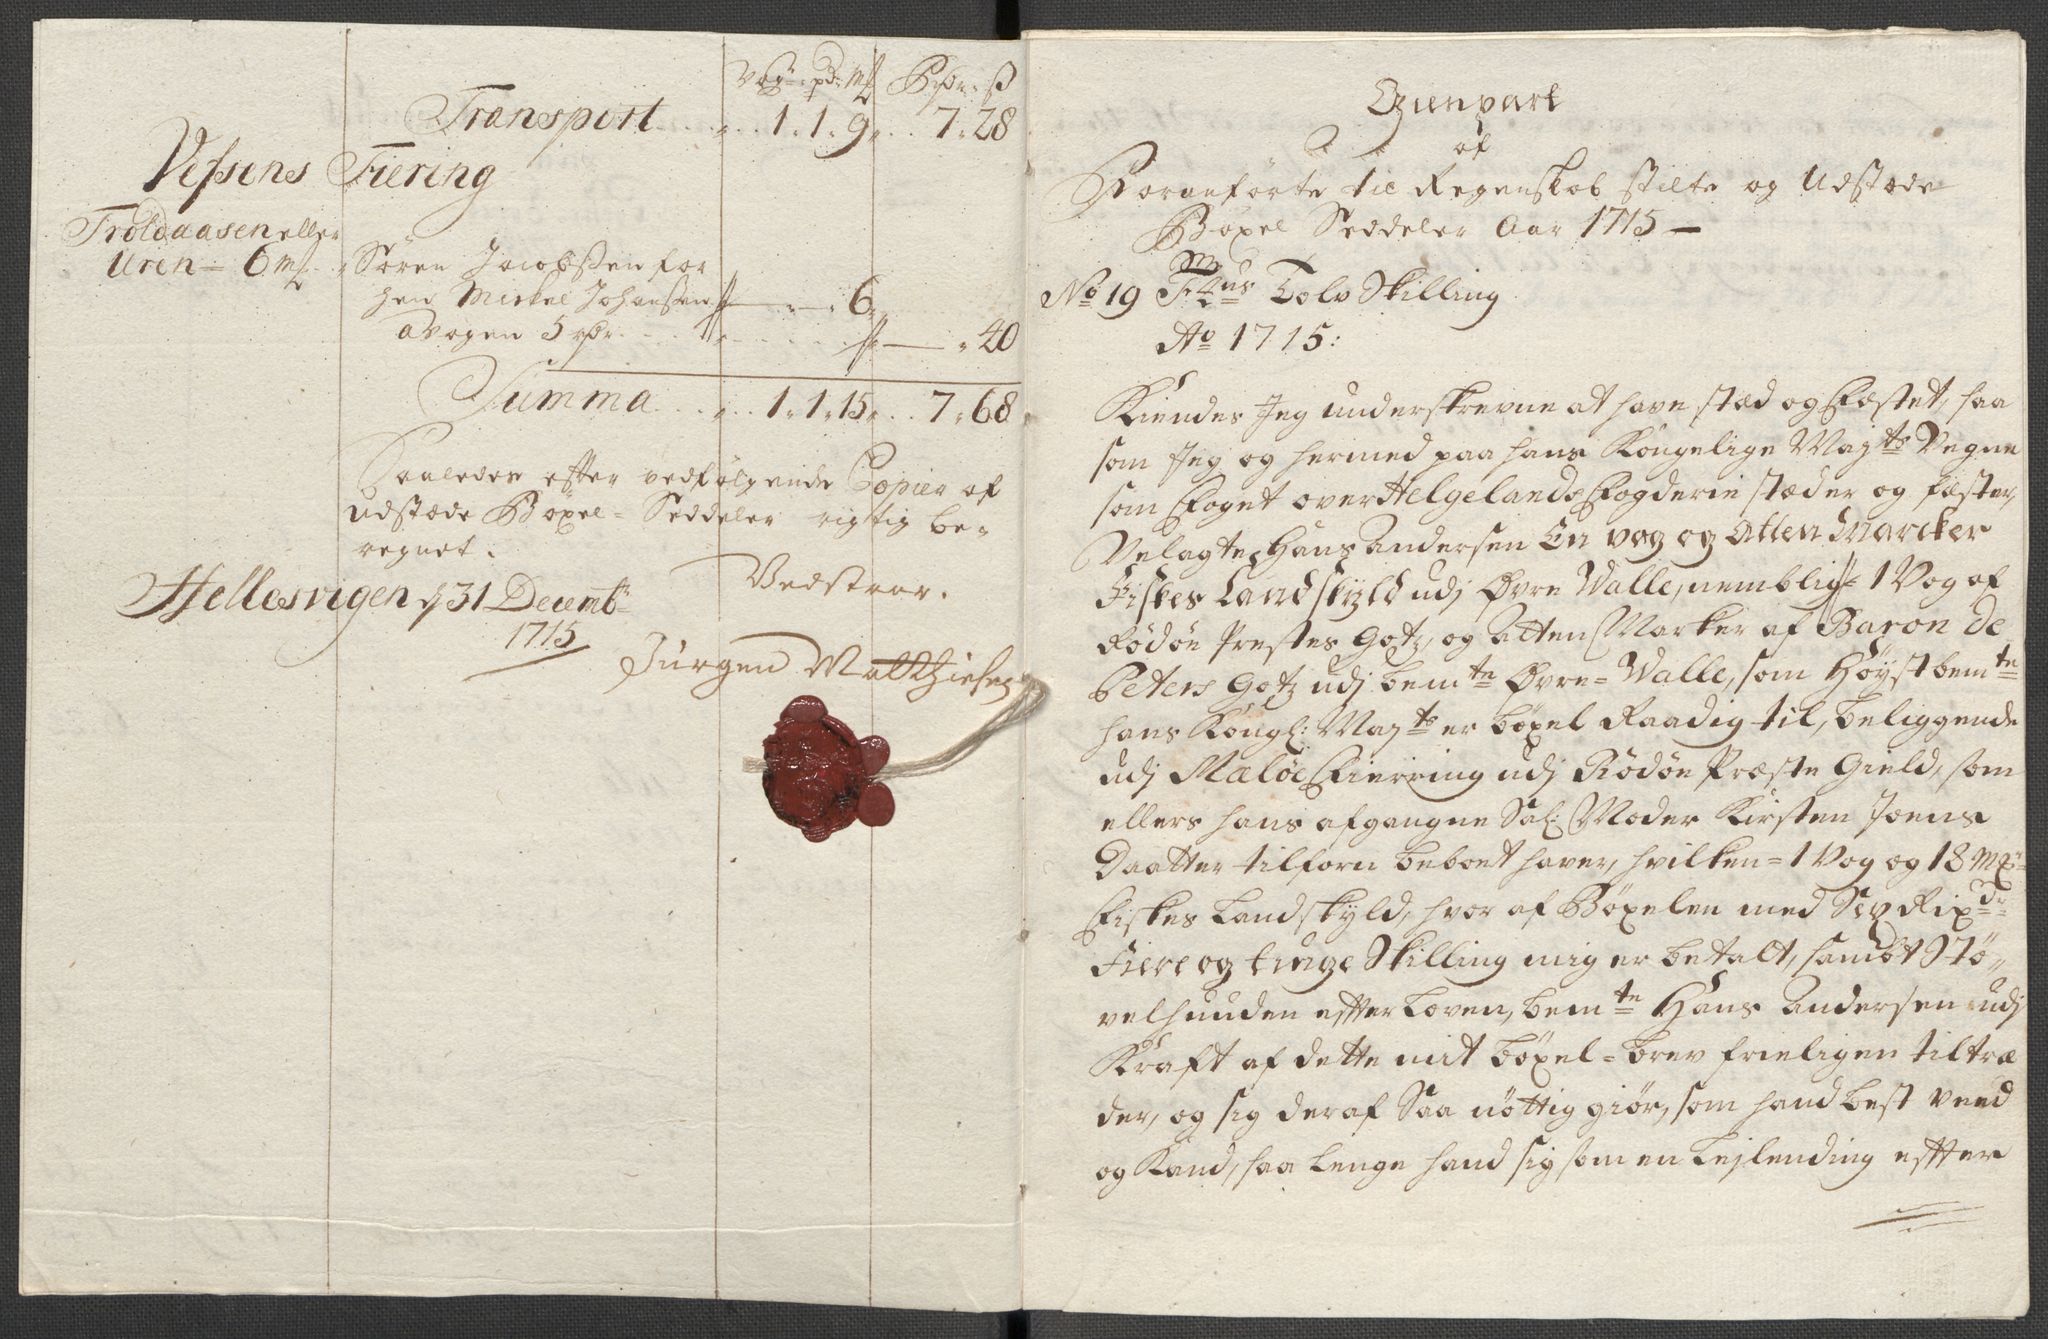 Vog: pd: m℔ Rdr: ß
Transport 1. 1. 9. 7. 28
Vefsens Fiering
Troldaasen eller
Uren - 6 m℔.
Søren Jacobssen for
hen Mickel Johanssen - 6.
a Vogen 5 rdr. - 40
Summa 1. 1. 15. 7. 68
Saaledes efter vedfølgende Copier af
udstæde Bøxel-Seddeler rigtig be-
regnet.
Vedstaar.
Hellesvigen d 31 Decemb:
1715
Jürgen Matthiesen
Gienpart
af
Foranførte til Regenskab stilte og Udstæde
Bøxel Seddeler Aar 1715 -
No 19 Tolv Skilling
Ao 1715:
Kiendes Jeg underskrevne at have stæd og Fæstet, saa
som Jeg og hermed paa hans Kongelige Majts Vegne
som Foget over Helgelands Fogderie stæder og fæster,
Velagte Hans Andersen En vog og Atten Marcker
Fiskes Landskyld udj Øvre Walle, nemblig= 1 Vog af
Rødøe Prestes Gotz, og Atten Marker af Baron de
Peters Gotz udj bemte Øvre=Walle, som Høyst bemte
hans Kongl: Majts er bøxel Raadig til, beliggende
udj Meløe Fierring udj Rødøe Præste Gield, som
ellers hans afgangne Sal: Moder Kirsten Joens
Daatter tilforn beboet haver, hvilken= 1 Vog og 18 mk:
Fiskes Landskyld, hvor af Bøxelen med Syv Rixdr
Fiere og tiuge Skilling mig er betalt, sambt Stø-
velhuuden efter Loven, bemte Hans Andersen udj
Kraft af dette mit bøxel=brev frieligen tiltræ
der, og sig deraf Saa nøttig giør, som hand best veed
og Kand, saa lenge hand sig som en Lejlending efter